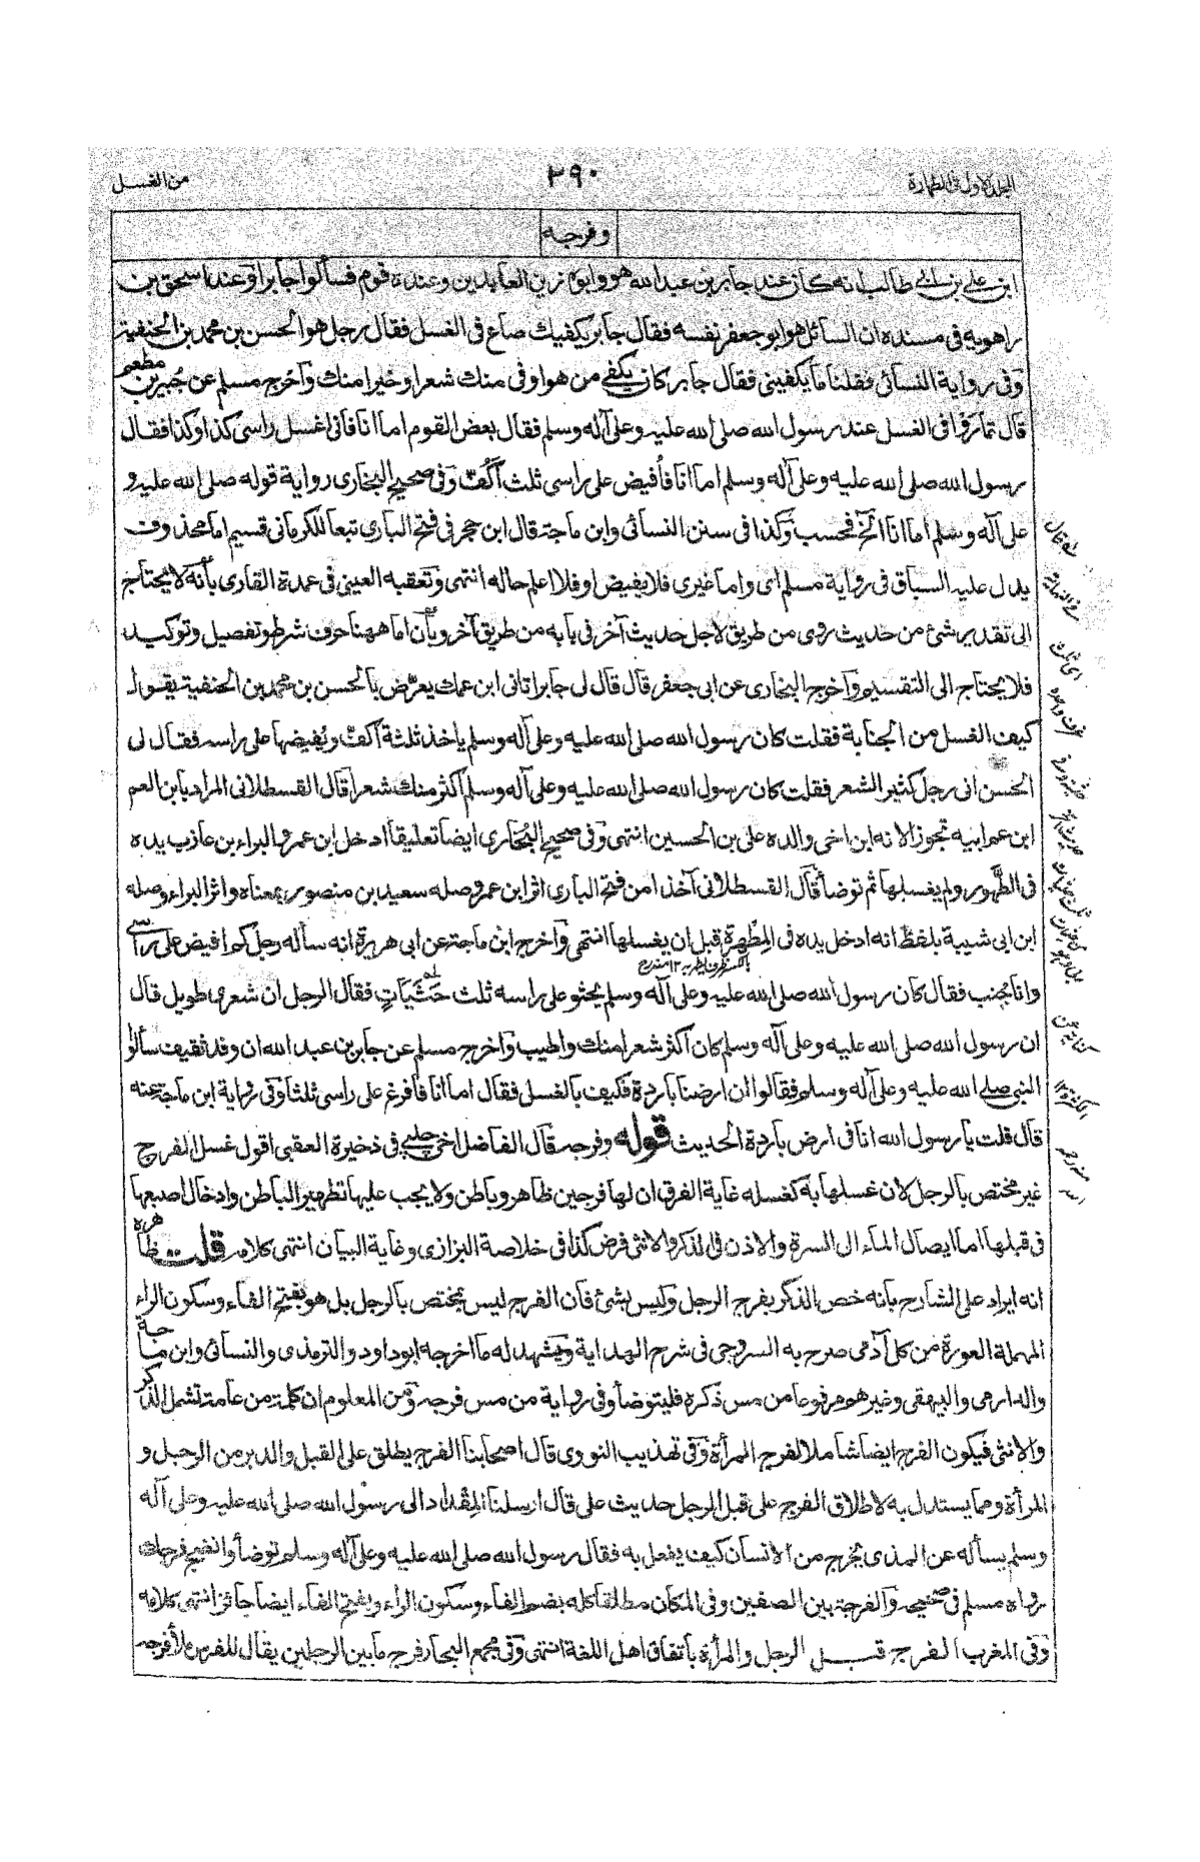 المجلد الاول فى الطهارة
٢٩٠
من الغسل
وفرجه
ابن على بن ابى طالب انه كان عند جابر بن عبد الله هو وابوه زين العابدين وعنده قوم فسألوا جابرا وعند اسحق بن
راهويه فى مسنده ان السائل هو ابو جعفر نفسه فقال جابر يكفيك صاع فى الغسل فقال رجل هو الحسن بن محمد بن الحنفية
وفى رواية النسائى فقلنا ما يكفينى فقال جابر كان يكفى من هو اوفى منك شعرا وخيرا منك وآخرج مسلم عن جبير بن مطعم
قال تماروا فى الغسل عند رسول الله صلى الله عليه وعلى آله وسلم فقال بعض القوم اما انا فانى اغسل راسى كذا وكذا فقال
رسول الله صلى الله عليه وعلى آله وسلم اما انا فأفيض على راسى ثلث أكف وفى صحيح البخارى رواية قوله صلى الله عليه و
على آله وسلم اما انا الخ فحسب وكذا فى سنن النسائى وابن ماجة قال ابن حجر فى فتح البارى تبعا للكرمانى قسيم اما محذوف
يدل عليه السباق فى رواية مسلم اى واما غيرى فلا يفيض او فلا اعلم حاله انتهى وتعقبه العينى فى عمدة القارى بأنه لا يحتاج
الى تقدير شئ من حديث روى من طريق لاجل حديث آخر فى بابه من طريق آخر وبأن اما ههنا حرف شرط وتفصيل وتوكيد
فلا يحتاج الى التقسيم وآخرج البخارى عن ابى جعفر قال قال لى جابر اتانى ابن عمك يعرّض بالحسن بن محمد بن الحنفية يقول
كيف الغسل من الجنابة فقلت كان رسول الله صلى الله عليه وعلى آله وسلم ياخذ ثلثة أكف ويفيضها على راسه فقال لى
الحسن انى رجل كثير الشعر فقلت كان رسول الله صلى الله عليه وعلى آله وسلم أكثر منك شعرا قال القسطلانى المراد بابن العم
ابن عم ابيه تجوزا لانه ابن اخى والده على بن الحسين انتهى وفى صحيح البخارى ايضا تعليقا ادخل ابن عمر والبراء بن عازب يده
فى الطَّهور ولم يغسلها ثم توضأ قال القسطلانى آخذا من فتح البارى اثر ابن عمر وصله سعيد بن منصور بمعناه واثر البراء وصله
ابن ابى شيبة بلفظ انه ادخل يده فى المِطهرة قبل ان يغسلها انتهى وآخرج ابن ماجة عن ابى هريرة انه سأله رجل كم افيض على راسى
وانا جُنب فقال كان رسول الله صلى الله عليه وعلى آله وسلم يحثو على راسه ثلث حَثَيَاتٍ فقال الرجل ان شعرى طويل قال
ان رسول الله صلى الله عليه وعلى آله وسلم كان أكثر شعرا منك واطيب وآخرج مسلم عن جابر بن عبد الله ان وفد ثقيف سألوا
النبى صلى الله عليه وعلى آله وسلم فقالوا ان ارضنا باردة فكيف بالغسل فقال اما انا فأفرغ على راسى ثلثا وفى رواية ابن ماجة عنه
قال قلت يا رسول الله انا فى ارض باردة الحديث قوله وفرجه قال الفاضل اخى چلپى فى ذخيرة العقبى اقول غسل الفرج
غير مختص بالرجل لان غسلها به كغسله غاية الفرق ان لها فرجين ظاهر وباطن ولا يجب عليها تطهير الباطن وادخال اصبعها
فى قبلها اما ايصال الماء الى السرة والاذن فى الذكر والانثى فرض كذا فى خلاصة البزازى وغاية البيان انتهى كلامه قلت ظاهره
انه ايراد على الشارح بأنه خص الذكر بفرج الرجل وليس بشئ فان الفرج ليس بمختص بالرجل بل هو بفتح الفاء وسكون الراء
المهملة العورة من كل آدمى صرح به السروجى فى شرح الهداية ويشهد له ما اخرجه ابو داود والترمذى والنسائى وابن ماجة
والدارمى والبيهقى وغيرهم مرفوعا من مس ذكره فليتوضأ وفى رواية من مس فرجه ومن المعلوم ان كلمة من عامة تشمل الذكر
والانثى فيكون الفرج ايضا شاملا لفرج المرأة وفى تهذيب النووى قال اصحابنا الفرج يطلق على القبل والدبر من الرجل و
المرأة ومما يستدل به لاطلاق الفرج على قبل الرجل حديث على قال ارسلنا المِقداد الى رسول الله صلى الله عليه وعلى آله
وسلم يسأله عن المذى يخرج من الانسان كيف يفعل به فقال رسول الله صلى الله عليه وعلى آله وسلم توضأ وانضح فرجك
رواه مسلم فى صحيحه والفرجة بين الصفين وفى المكان مطلقا كله بضم الفاء وسكون الراء وبفتح الفاء ايضا جائز انتهى كلامه
وفى المغرب الفرج قبل الرجل والمرأة باتفاق اهل اللغة انتهى وفى مجمع البحار فرج ما بين الرجلين يقال للفرس ملأ فرجه